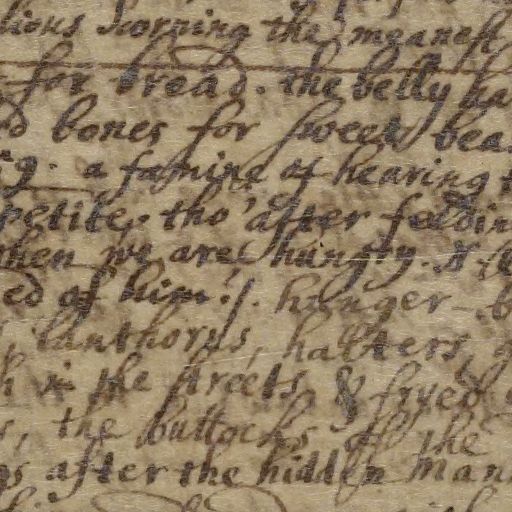 scorning the meanest
for bread. the belly ha
bones for sweet bea
a famine of hearing t
petite, tho' after feedin
when we are hungry.
ed of him. hunger
lanthorns, halters,
in the streets & fryed
the buttocks of the
gs after the hidden Man